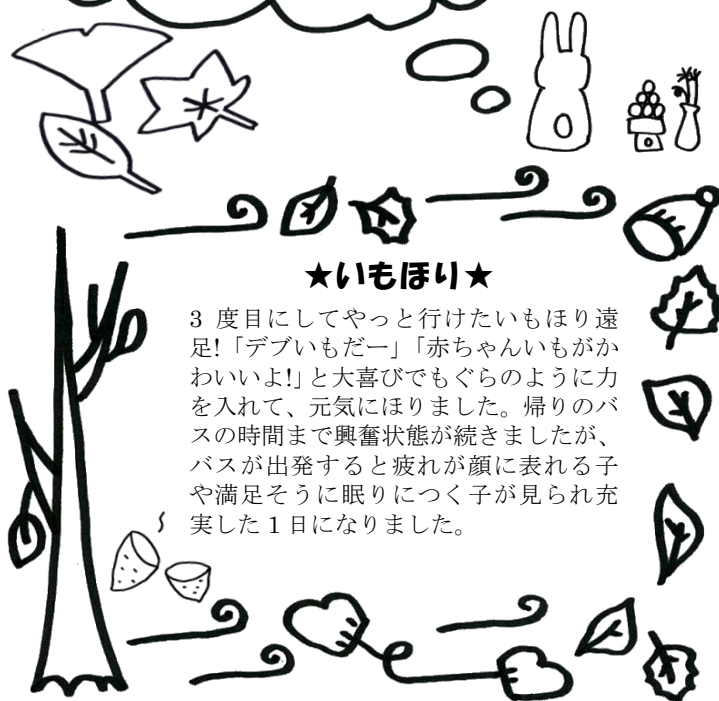 ★いもほり★
3 度目にしてやっと行けたいもほり遠
足!「デブいもだー」「赤ちゃんいもがか
わいいよ!」と大喜びでもぐらのように力
を入れて、元気にほりました。帰りのバ
スの時間まで興奮状態が続きましたが、
バスが出発すると疲れが顔に表れる子
や満足そうに眠りにつく子が見られ充
実した 1 日になりました。